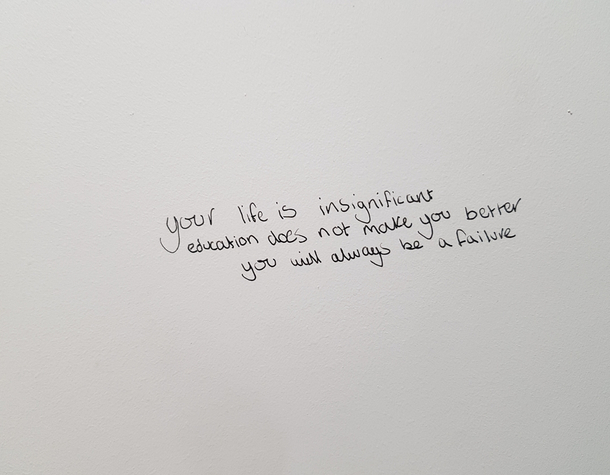 your life is insignificant
education does not make you better
you will always be a failure